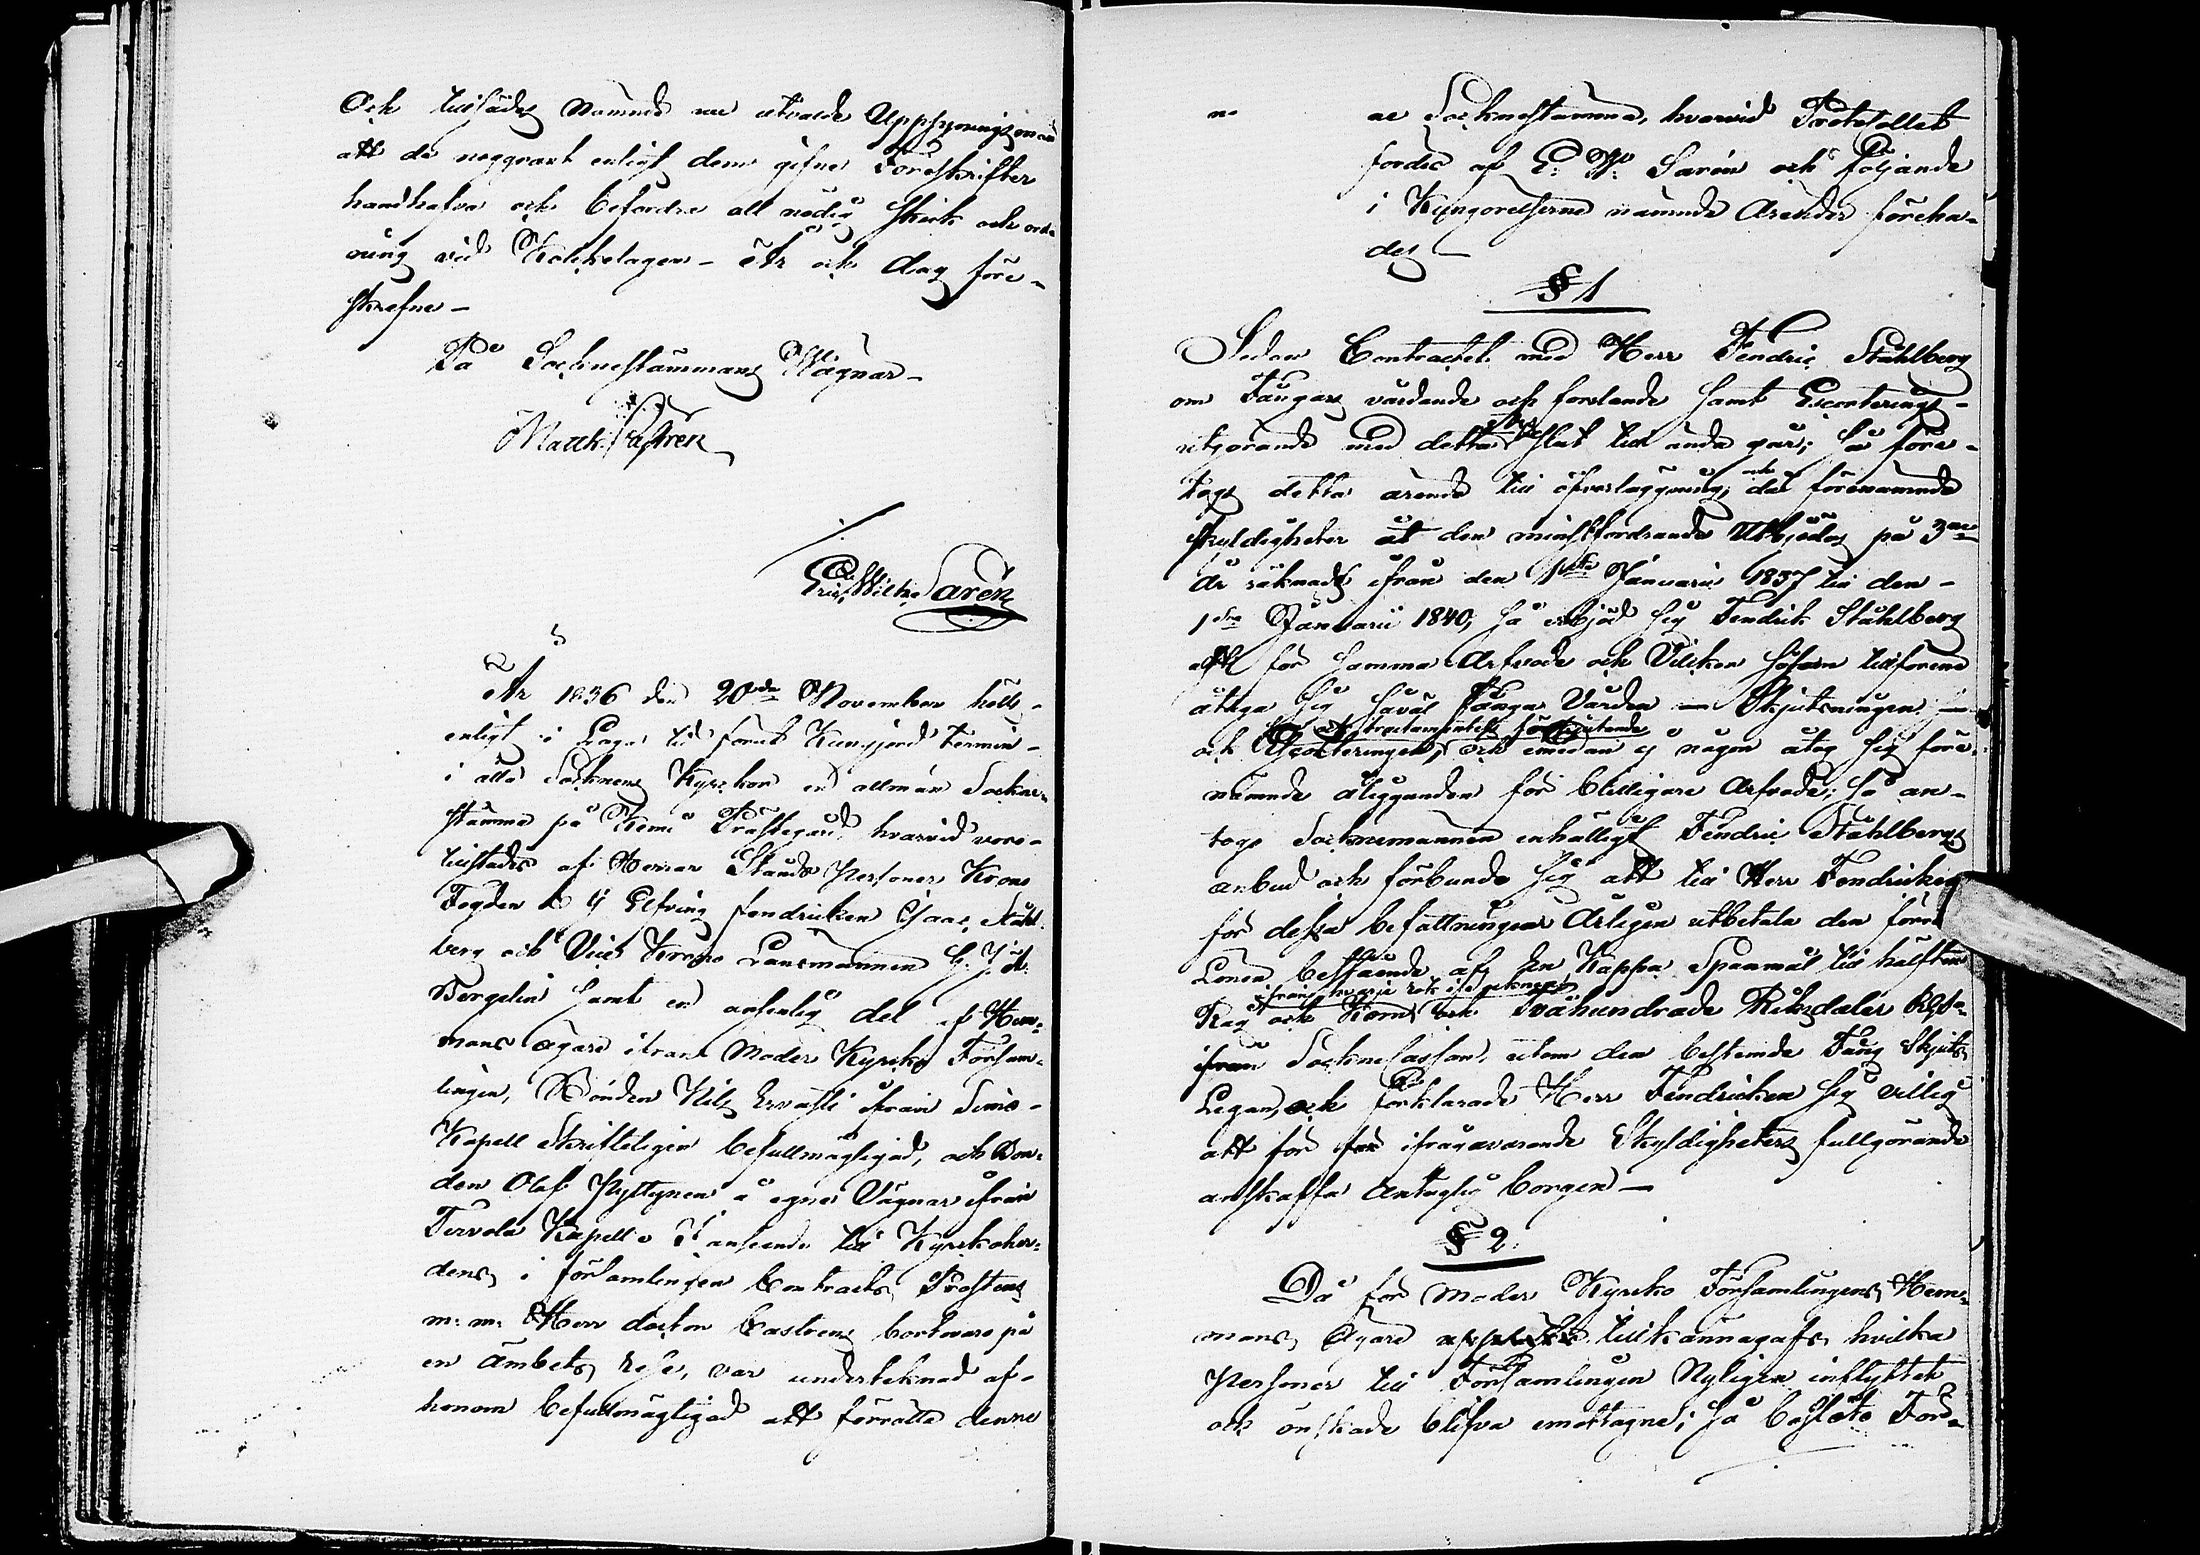 Och tillsädes nämnde nu utvalde Uppsyningsmän
att de noggrant enligt dem gifne Föreskrifter
handhafva och befordra all nödig skick och ord-
ning vid Kolckelagen - År och dag före-
skrefne -
På Socknestämmans Wägnar -
Matth. Castrén
Eric Wilhe Sarén
År 1836 den 20de November hölls
enligt i Laga tid förut Kungjord termin
i alla Socknens Kyrckor en allmän Sockne-
stämma på Kemi Prästegård hvarvid voro
tillstädes af Herrar Stånds Personer Krono
Fogden Elfving fendricken Isaac Ståhl-
berg och Vice Krono Länsmannen
Bergelin samt en ansenlig del af Hem-
mans ägare ifrån Moder Kyrko Försam-
lingen, Bonden Nils Ervasti ifrån Simo
Kapell Skrifteligen befullmägtigad, och Bon-
den Olof Pyttynen å egne Vägnar ifrån
Tervola Kapell. I anseende till Kyrkoher-
dens i församlingen Contracts Prostens
m: m: Herr doctor Castrens bortovaro på
en ämbets resa, var undertecknad af
honom befullmägtigad att förrätta denne
ne Socknestämma, hvarvid Protokollet
fördes af E. W. Sarén och följande
i Kungörelserne nämnde Ärender föreha-
des
§ 1
Sedan Contractet med Herr Fendric Ståhlberg
om Fångars vårdande och forslande samt Escorterings-
utgörande med detta års slut till ända går; så före-
togs detta ärende till öfverläggning, och då förenämnde
skyldigheter åt den minstfordrande Utbjödos på 3ne
år räknadt ifrån den 1sta Januarii 1837 till den
1sta Januarii 1840, så erbjöd sig Fendrik Ståhlberg
att för samma Arfvode och Vilckor såsom tillförene
åtaga sig såväl Fånga Vården - Skjutsningen -
och Escorteringen, och emedan ej någon åtog sig före-
nämnde åligganden för billigare Arfvode; så an-
togo Socknemännen enhälligt Fendric Ståhlbergs
anbud och förbundo sig att till Herr Fendricken
för dessa befattningar Årligen utbetala den förra
Lönen bestående af En Kappa Spanmål till hälften
Råg och Korn ifrån hvarje rök i Socknen och Tvåhundrade Riksdaler Rgs
ifrån Socknecassan, utom den bestämda Fång Skjuts
Legan, och förklarade Herr Fendricken sig villig
att för ifrågavarande Skyldigheters fullgörande
anskaffa Antaglig borgen -
§ 2
Då för Moder Kyrcko Församlingens Hem-
mans Ägare tillkännagafs hvilka
Personer till Församlingen Nyligen inflyttat
och önskade blifva emottagne; så beslöts För-